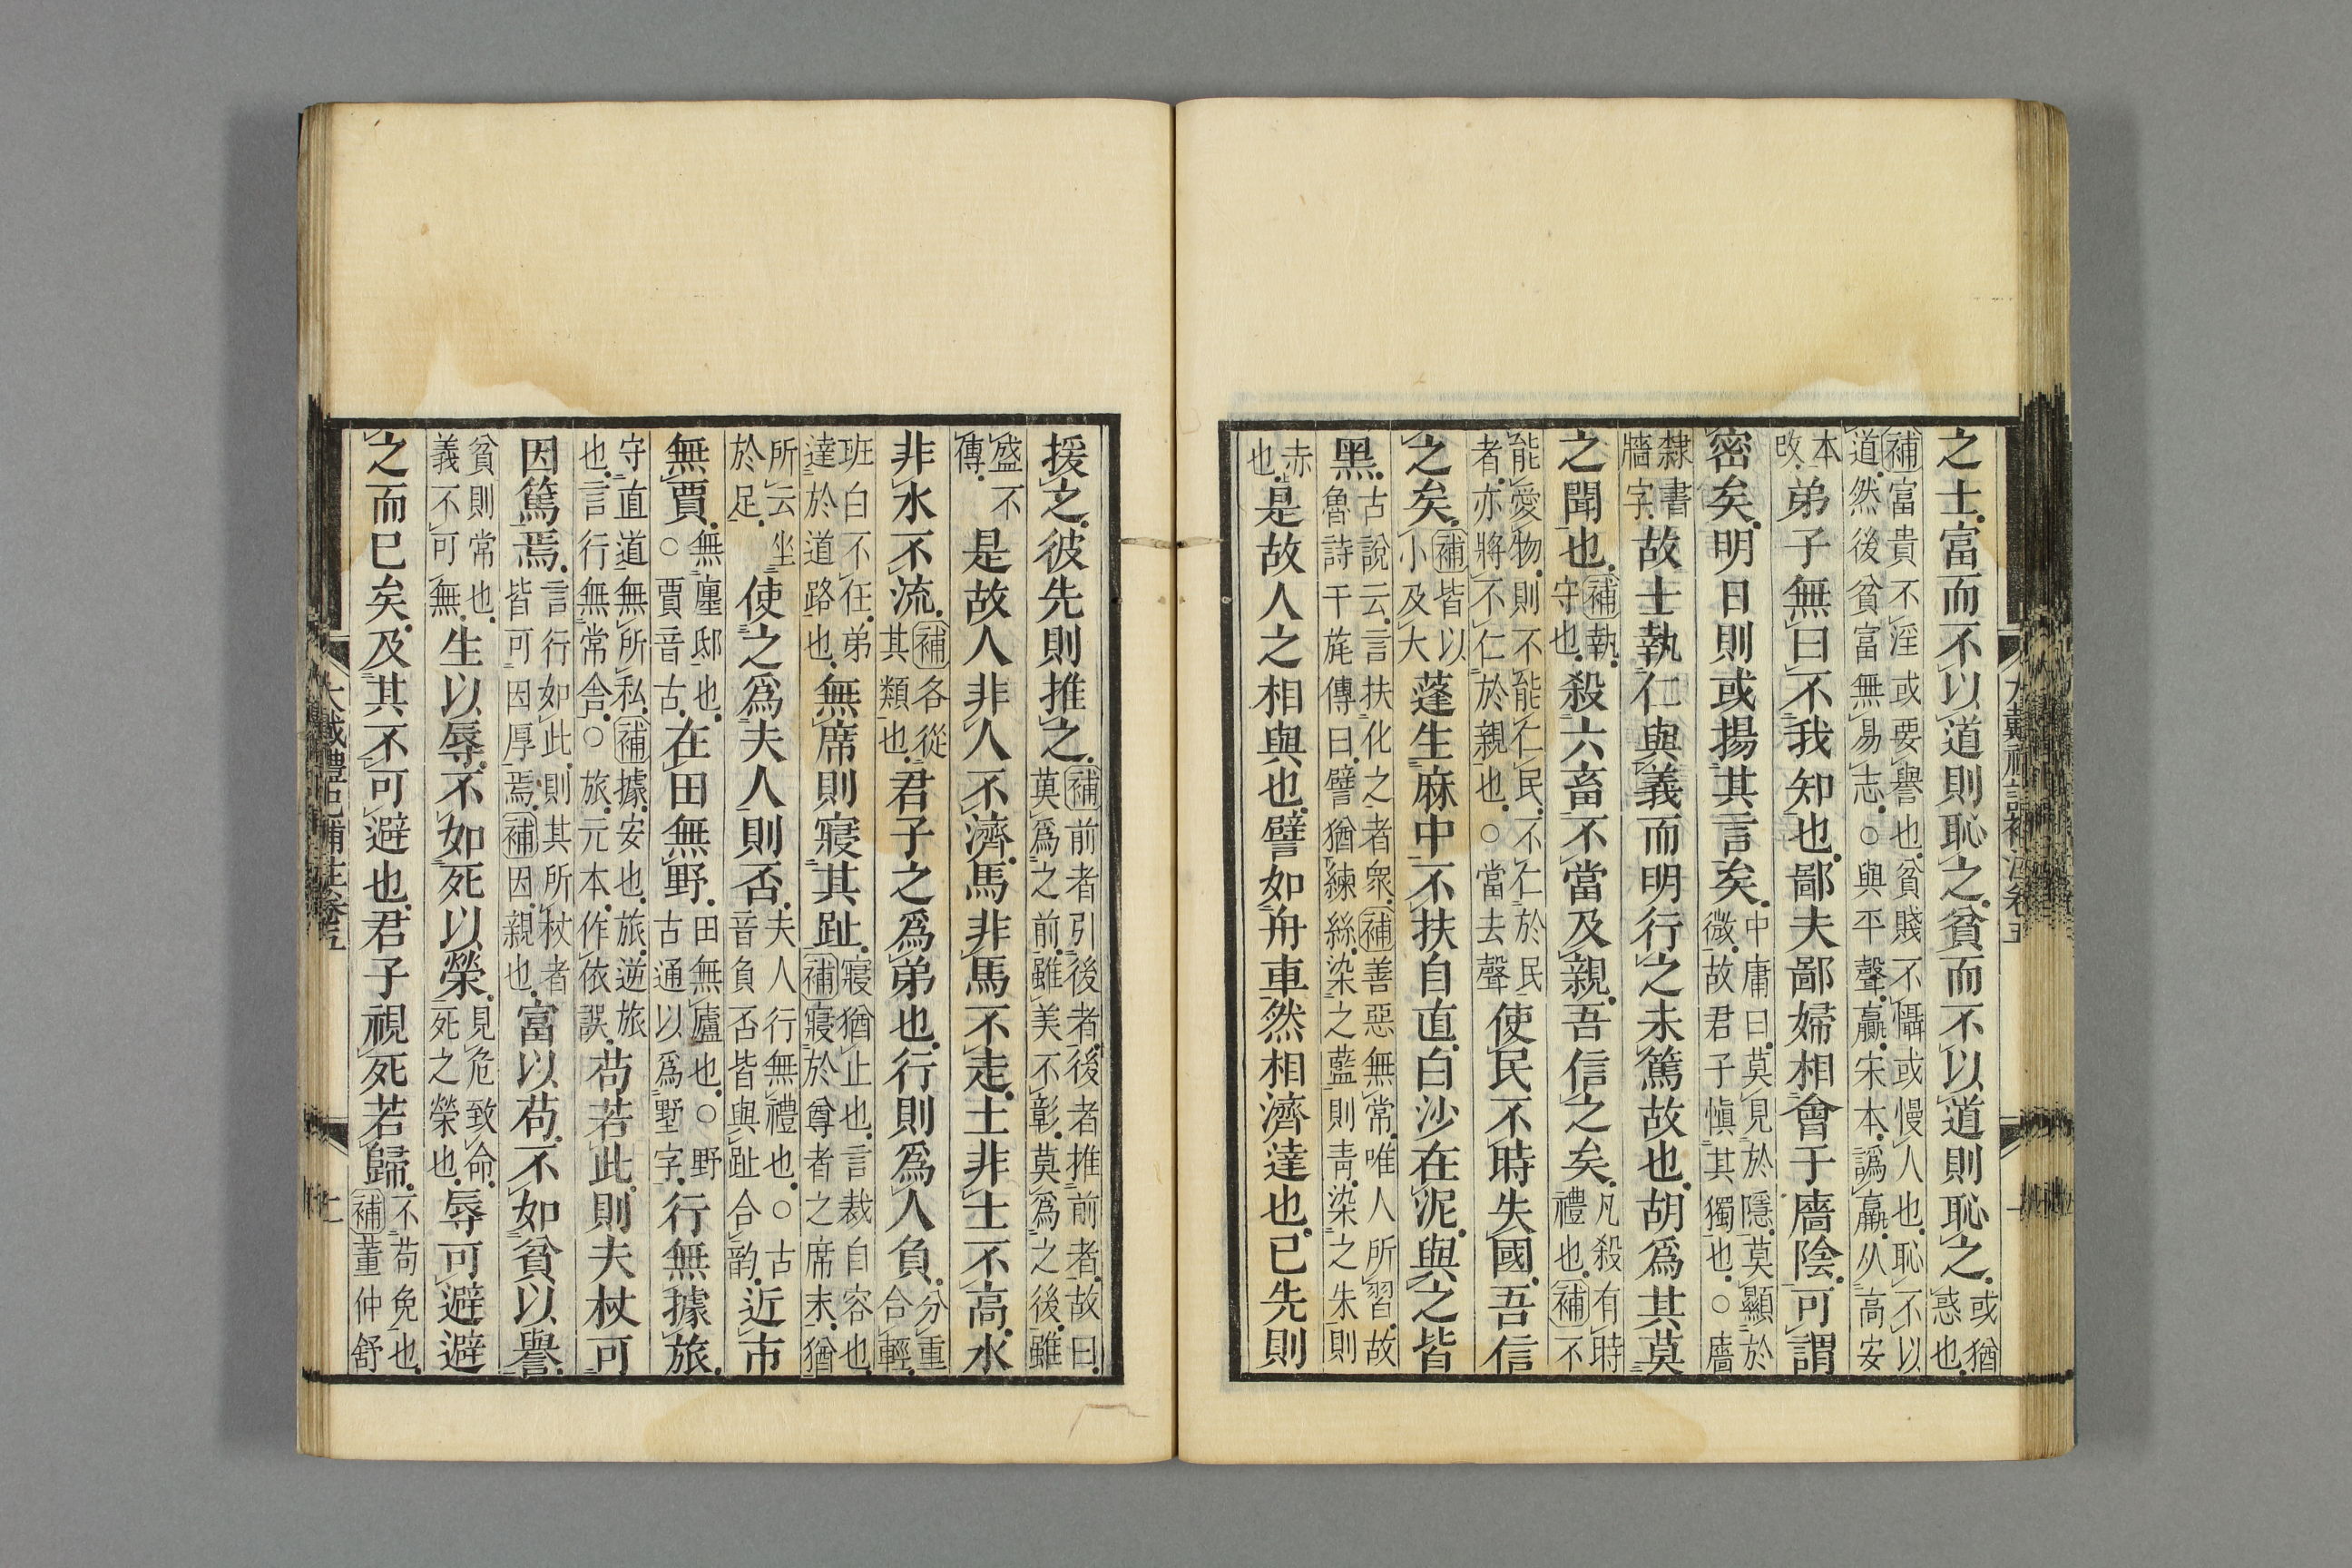 之士富而不以道則恥之貧而不以道則恥之或猶惑也
補富貴不淫或要譽也貧賤不懾或慢人也恥不以
道然後貧富無易志○與平聲贏宋本譌羸从高安
本改弟子無曰不我知也鄙夫鄙婦相會于廧陰可謂
密矣明日則或揚其言矣中庸曰莫見於隱莫顯於
微故君子愼其獨也○廧
隸書牆字故士執仁與義而明行之未篤故也胡爲其莫
之聞也補執守也殺六畜不當及親吾信之矣凡殺有時禮也補不
能愛物則不能仁民不仁於民
者亦將不仁於親也○當去聲使民不時失國吾信
之矣補皆以小及大蓬生麻中不扶自直白沙在泥與之皆
黑古說云言扶化之者衆補善惡無常唯人所習故
魯詩干旄傳曰譬猶練絲染之藍則靑染之朱則
赤也是故人之相與也譬如舟車然相濟達也已先則
援之彼先則推之補前者引後者後者推前者故曰
莫爲之前雖美不彰莫爲之後雖
盛不傳是故人非人不濟馬非馬不走土非土不高水
非水不流補各從其類也君子之爲弟也行則爲人負分重合輕
班白不任弟
達於道路也無席則寢其趾補寢猶止也言裁自容也
寢於尊者之席末猶
所云坐於足使之爲夫人則否夫人行無禮也○古
音負否皆與趾合韵近市
無賈無廛邸也○賈音古在田無野田無廬也○野
古通以爲墅字行無據旅
守直道無所私補據安也旅逆旅
也言行無常舍○旅元本作依誤苟若此則夫杖可
因篤焉言行如此則其所杖者
皆可因厚焉補因親也富以苟不如貧以譽
貧則常也義不可無生以辱不如死以榮見危致命死之榮也辱可避避
之而已矣及其不可避也君子視死若歸不苟免也補董仲舒
大戴禮記補注卷五